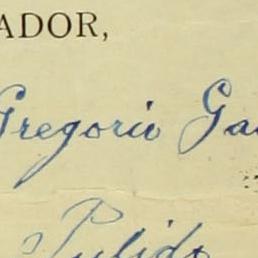 ADOR,
Gregorio Ga
Pulido